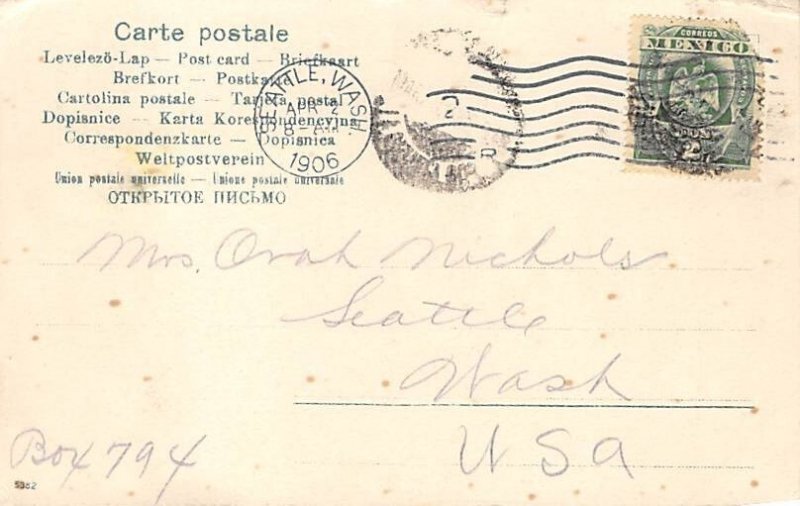 Carte postale
Levelező-Lap — Post card — Briefkaart
Brefkort — Postkarte
Cartolina postale — Tarjeta postal
Dopisnice — Karta Korespondencyjna
Correspondenzkarte — Dopisnica
Weltpostverein
Union postale universelle — Unione postale universale
ОТКРЫТОЕ ПИСЬМО
SEATTLE, WASH.
APR
8-AM
1906
CORREOS
MEXICO
2
Mrs. Orah Nichols
Seattle
Wash
USA
Box 794
5382